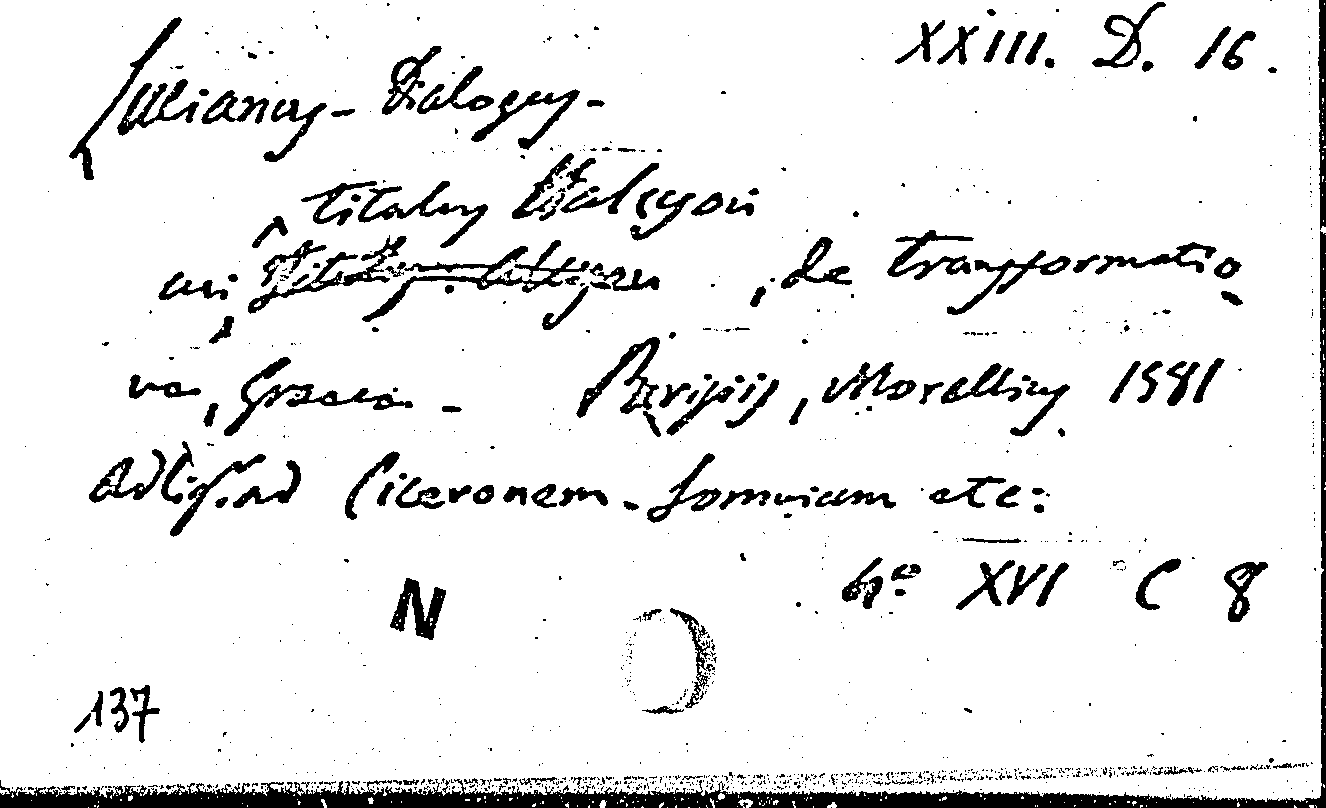 XXIII. D. 16.
Lucianus - Dialogus -
titulus Halcyon
cui, , de transformatio
ne, Graece - Parisijs, Morellius 1581
Adlig. ad Ciceronem - Somnium etc:
4º XVI C 8
N
137